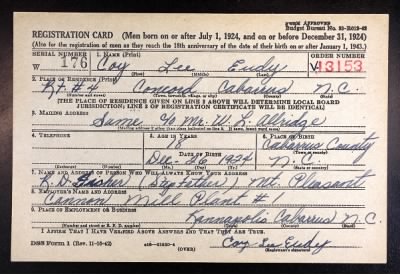 FORM APPROVED
Budget Bureau No. 33-R012-42
REGISTRATION CARD (Men born on or after July 1, 1924, and on or before December 31, 1924)
(Also for the registration of men as they reach the 18th anniversary of the date of their birth on or after January 1, 1943.)
SERIAL NUMBER
1. NAME (Print)
ORDER NUMBER
W 176 Coy Lee Eudy V 13153
(First) (Middle) (Last)
2. PLACE OF RESIDENCE (Print)
Rt. #4 Concord Cabarrus N.C.
(Number and street) (Town, township, village, or city) (County) (State)
[THE PLACE OF RESIDENCE GIVEN ON LINE 2 ABOVE WILL DETERMINE LOCAL BOARD
JURISDICTION; LINE 2 OF REGISTRATION CERTIFICATE WILL BE IDENTICAL]
3. MAILING ADDRESS
Same % Mr. W. L. Allridge
(Mailing address if other than place indicated on line 2. If same, insert word same)
4. TELEPHONE
5. AGE IN YEARS
6. PLACE OF BIRTH
18
Cabarrus County
DATE OF BIRTH
Dec - 26 1924 N.C.
(Exchange) (Number) (Mo.) (Day) (Yr.) (State or country)
7. NAME AND ADDRESS OF PERSON WHO WILL ALWAYS KNOW YOUR ADDRESS
(Step Father) Mt. Pleasant
8. EMPLOYER'S NAME AND ADDRESS
Cannon Mill Plant #1
9. PLACE OF EMPLOYMENT OR BUSINESS
Kannapolis Cabarrus N.C.
(Number and street or R. F. D. number) (Town) (County) (State)
I AFFIRM THAT I HAVE VERIFIED ABOVE ANSWERS AND THAT THEY ARE TRUE.
DSS Form 1 (Rev. 11-16-42)
(OVER)
Coy Lee Eudy